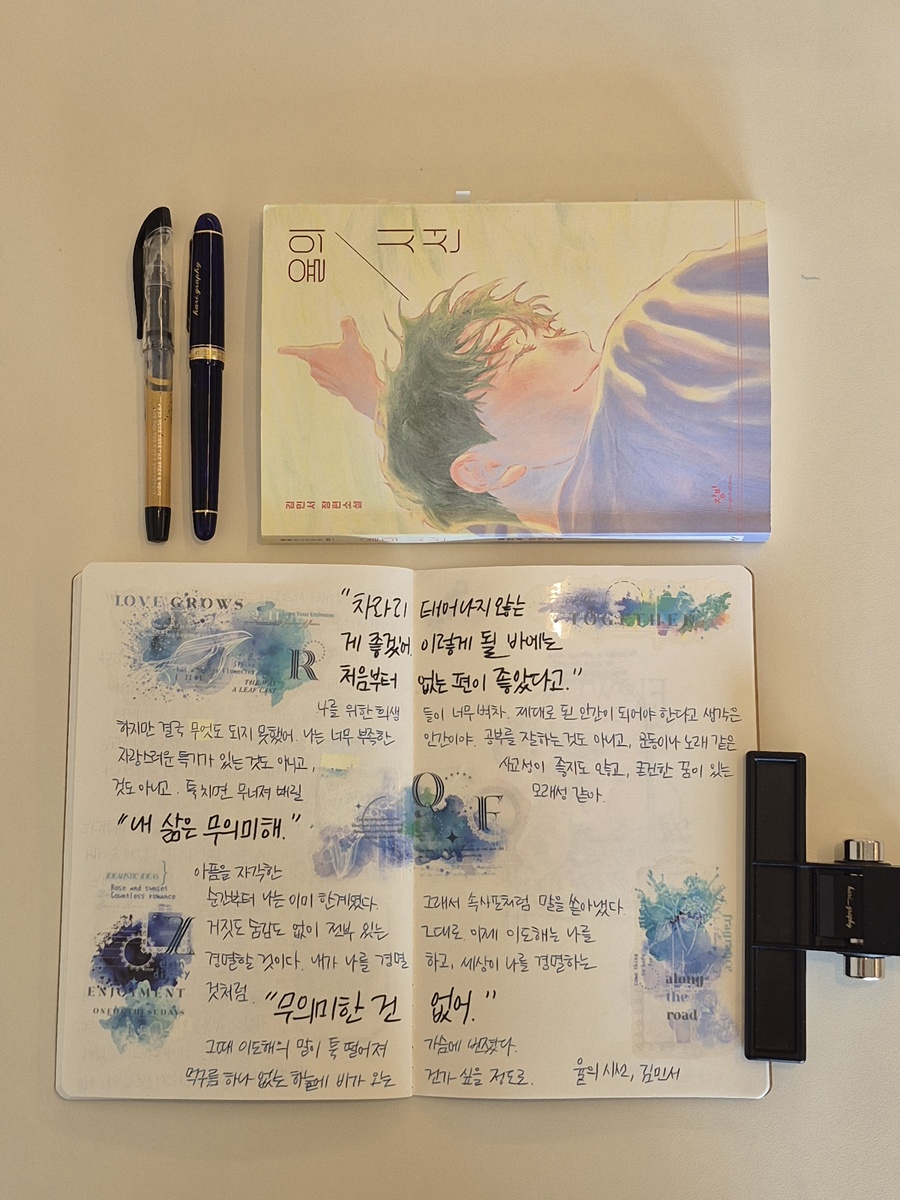 율의
시선
김민서 장편소설
창비
hari.graphy
LOVE GROWS
R
THE WAY
A LEAF CAST
TOGETHER
"차라리 태어나지 않는
게 좋겠어. 이렇게 될 바에는
처음부터 없는 편이 좋았다고."
나를 위한 희생들이 너무 벅차. 제대로 된 인간이 되어야 한다고 생각은
하지만 결국 무엇도 되지 못했어. 나는 너무 부족한 인간이야. 공부를 잘하는 것도 아니고, 운동이나 노래 같은
자랑스러운 특기가 있는 것도 아니고, 사교성이 좋지도 않고, 굳건한 꿈이 있는
것도 아니고. 툭 치면 무너져 버릴 모래성 같아.
Q
F
"내 삶은 무의미해."
IDEALISTIC IDEAS
Rose and sunset
Countless romance
아픔을 자각한
순간부터 나는 이미 한계였다. 그래서 속사포처럼 말을 쏟아냈다.
거짓도 숨김도 없이 전부 있는 그대로. 이제 이도해는 나를
경멸할 것이다. 내가 나를 경멸하고, 세상이 나를 경멸하는
것처럼.
"무의미한 건 없어."
그때 이도해의 말이 툭 떨어져 가슴에 번졌다.
먹구름 하나 없는 하늘에 비가 오는 건가 싶을 정도로.
율의 시선, 김민서
Z
ENJOYMENT
ONE OF THESE DAYS
along
the
road